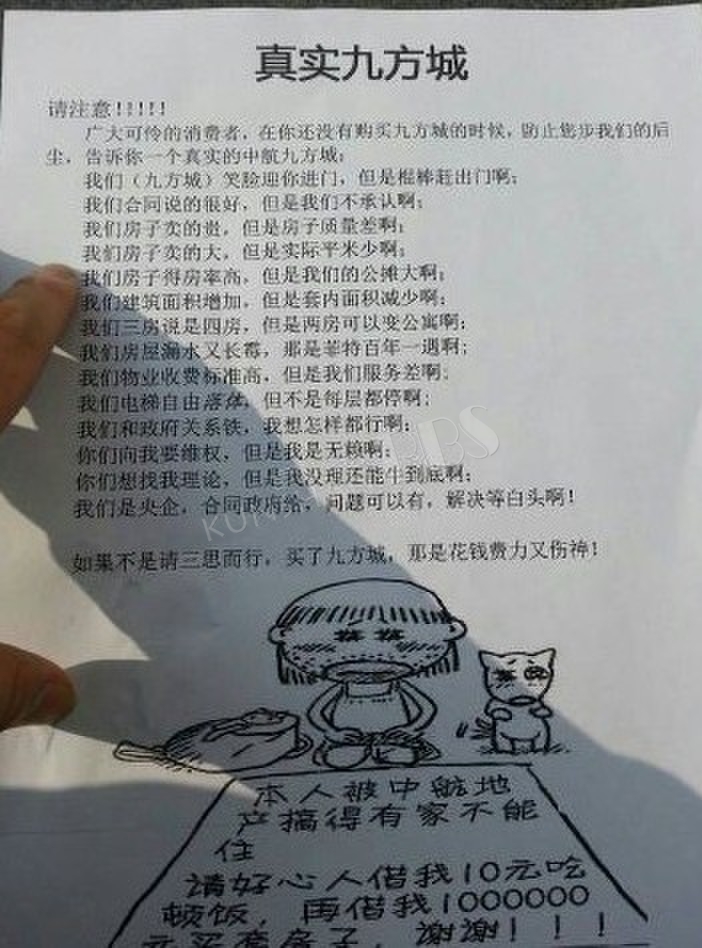 真实九方城
请注意!!!!!
广大可伶的消费者，在你还没有购买九方城的时候，防止您步我们的后
尘，告诉你一个真实的中航九方城：
我们（九方城）笑脸迎你进门，但是棍棒赶出门啊；
我们合同说的很好，但是我们不承认啊；
我们房子卖的贵，但是房子质量差啊；
我们房子卖的大，但是实际平米少啊；
我们房子得房率高，但是我们的公摊大啊；
我们建筑面积增加，但是套内面积减少啊；
我们三房说是四房，但是两房可以变公寓啊；
我们房屋漏水又长霉，那是菲特百年一遇啊；
我们物业收费标准高，但是我们服务差啊；
我们电梯自由落体，但不是每层都停啊；
我们和政府关系铁，我想怎样都行啊；
你们向我要维权，但是我是无赖啊；
你们想找我理论，但是我没理还能牛到底啊；
我们是央企，合同政府给，问题可以有，解决等白头啊！
如果不是请三思而行，买了九方城，那是花钱费力又伤神！
本人被中航地
产搞得有家不能
住
請好心人借我10元吃
顿饭，再借我1000000
元买套房子，谢谢！！！
BBS